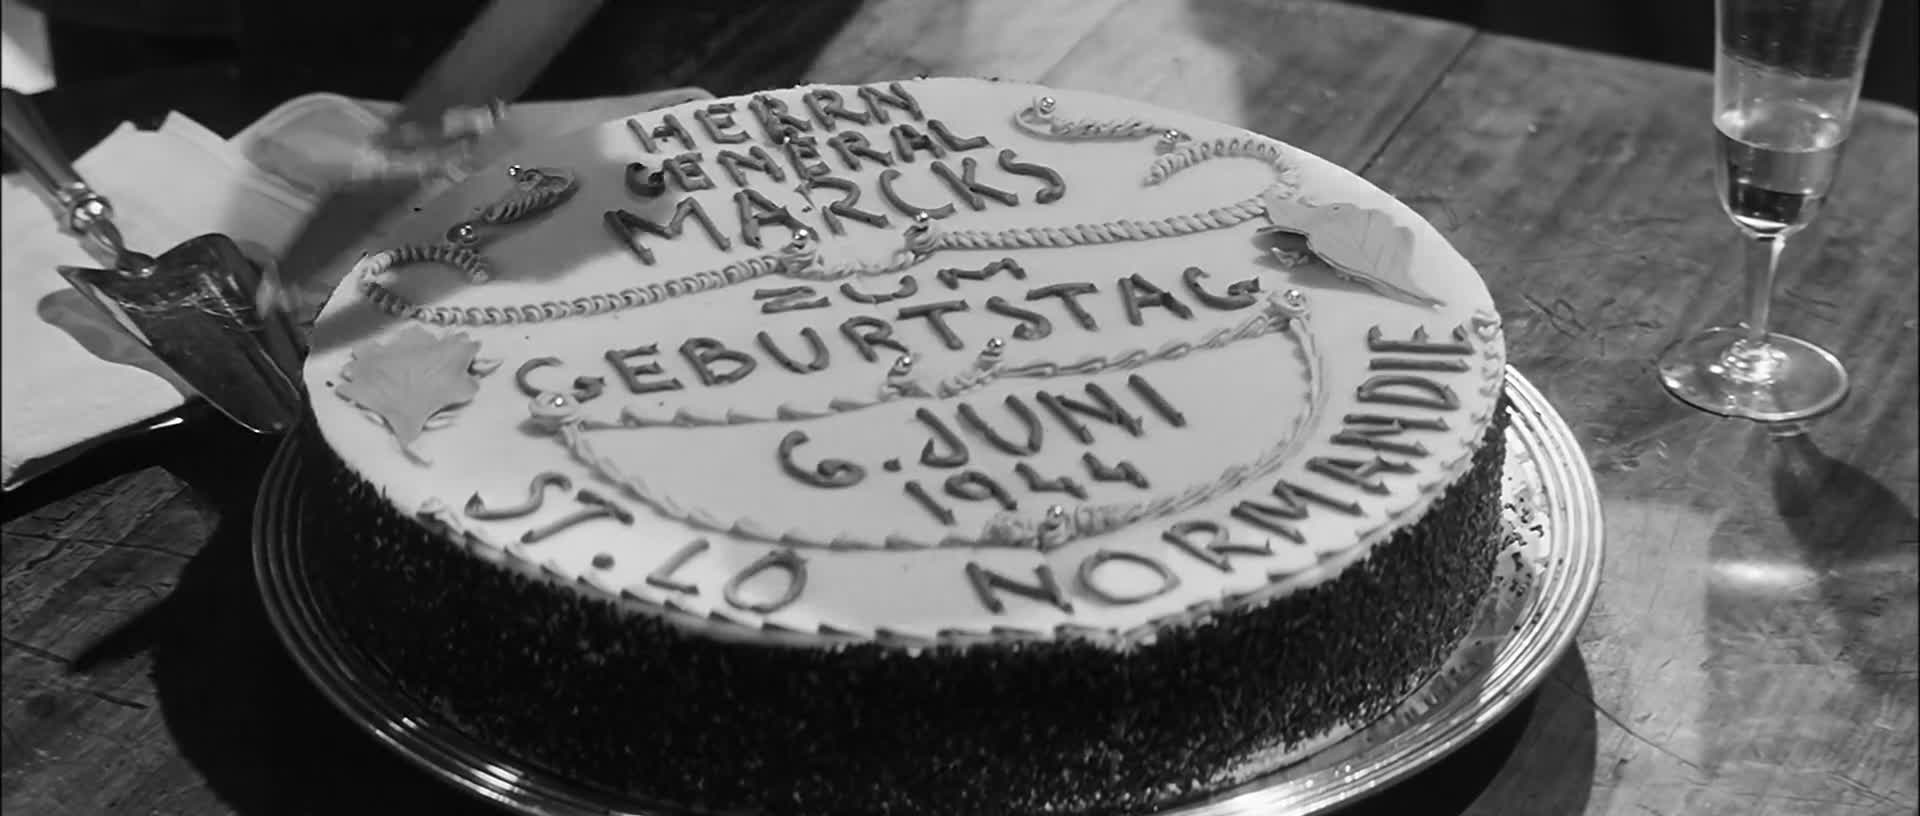 HERRN
GENERAL
MARCKS
ZUM
GEBURTSTAG
6. JUNI
1944
ST. LO NORMANDIE